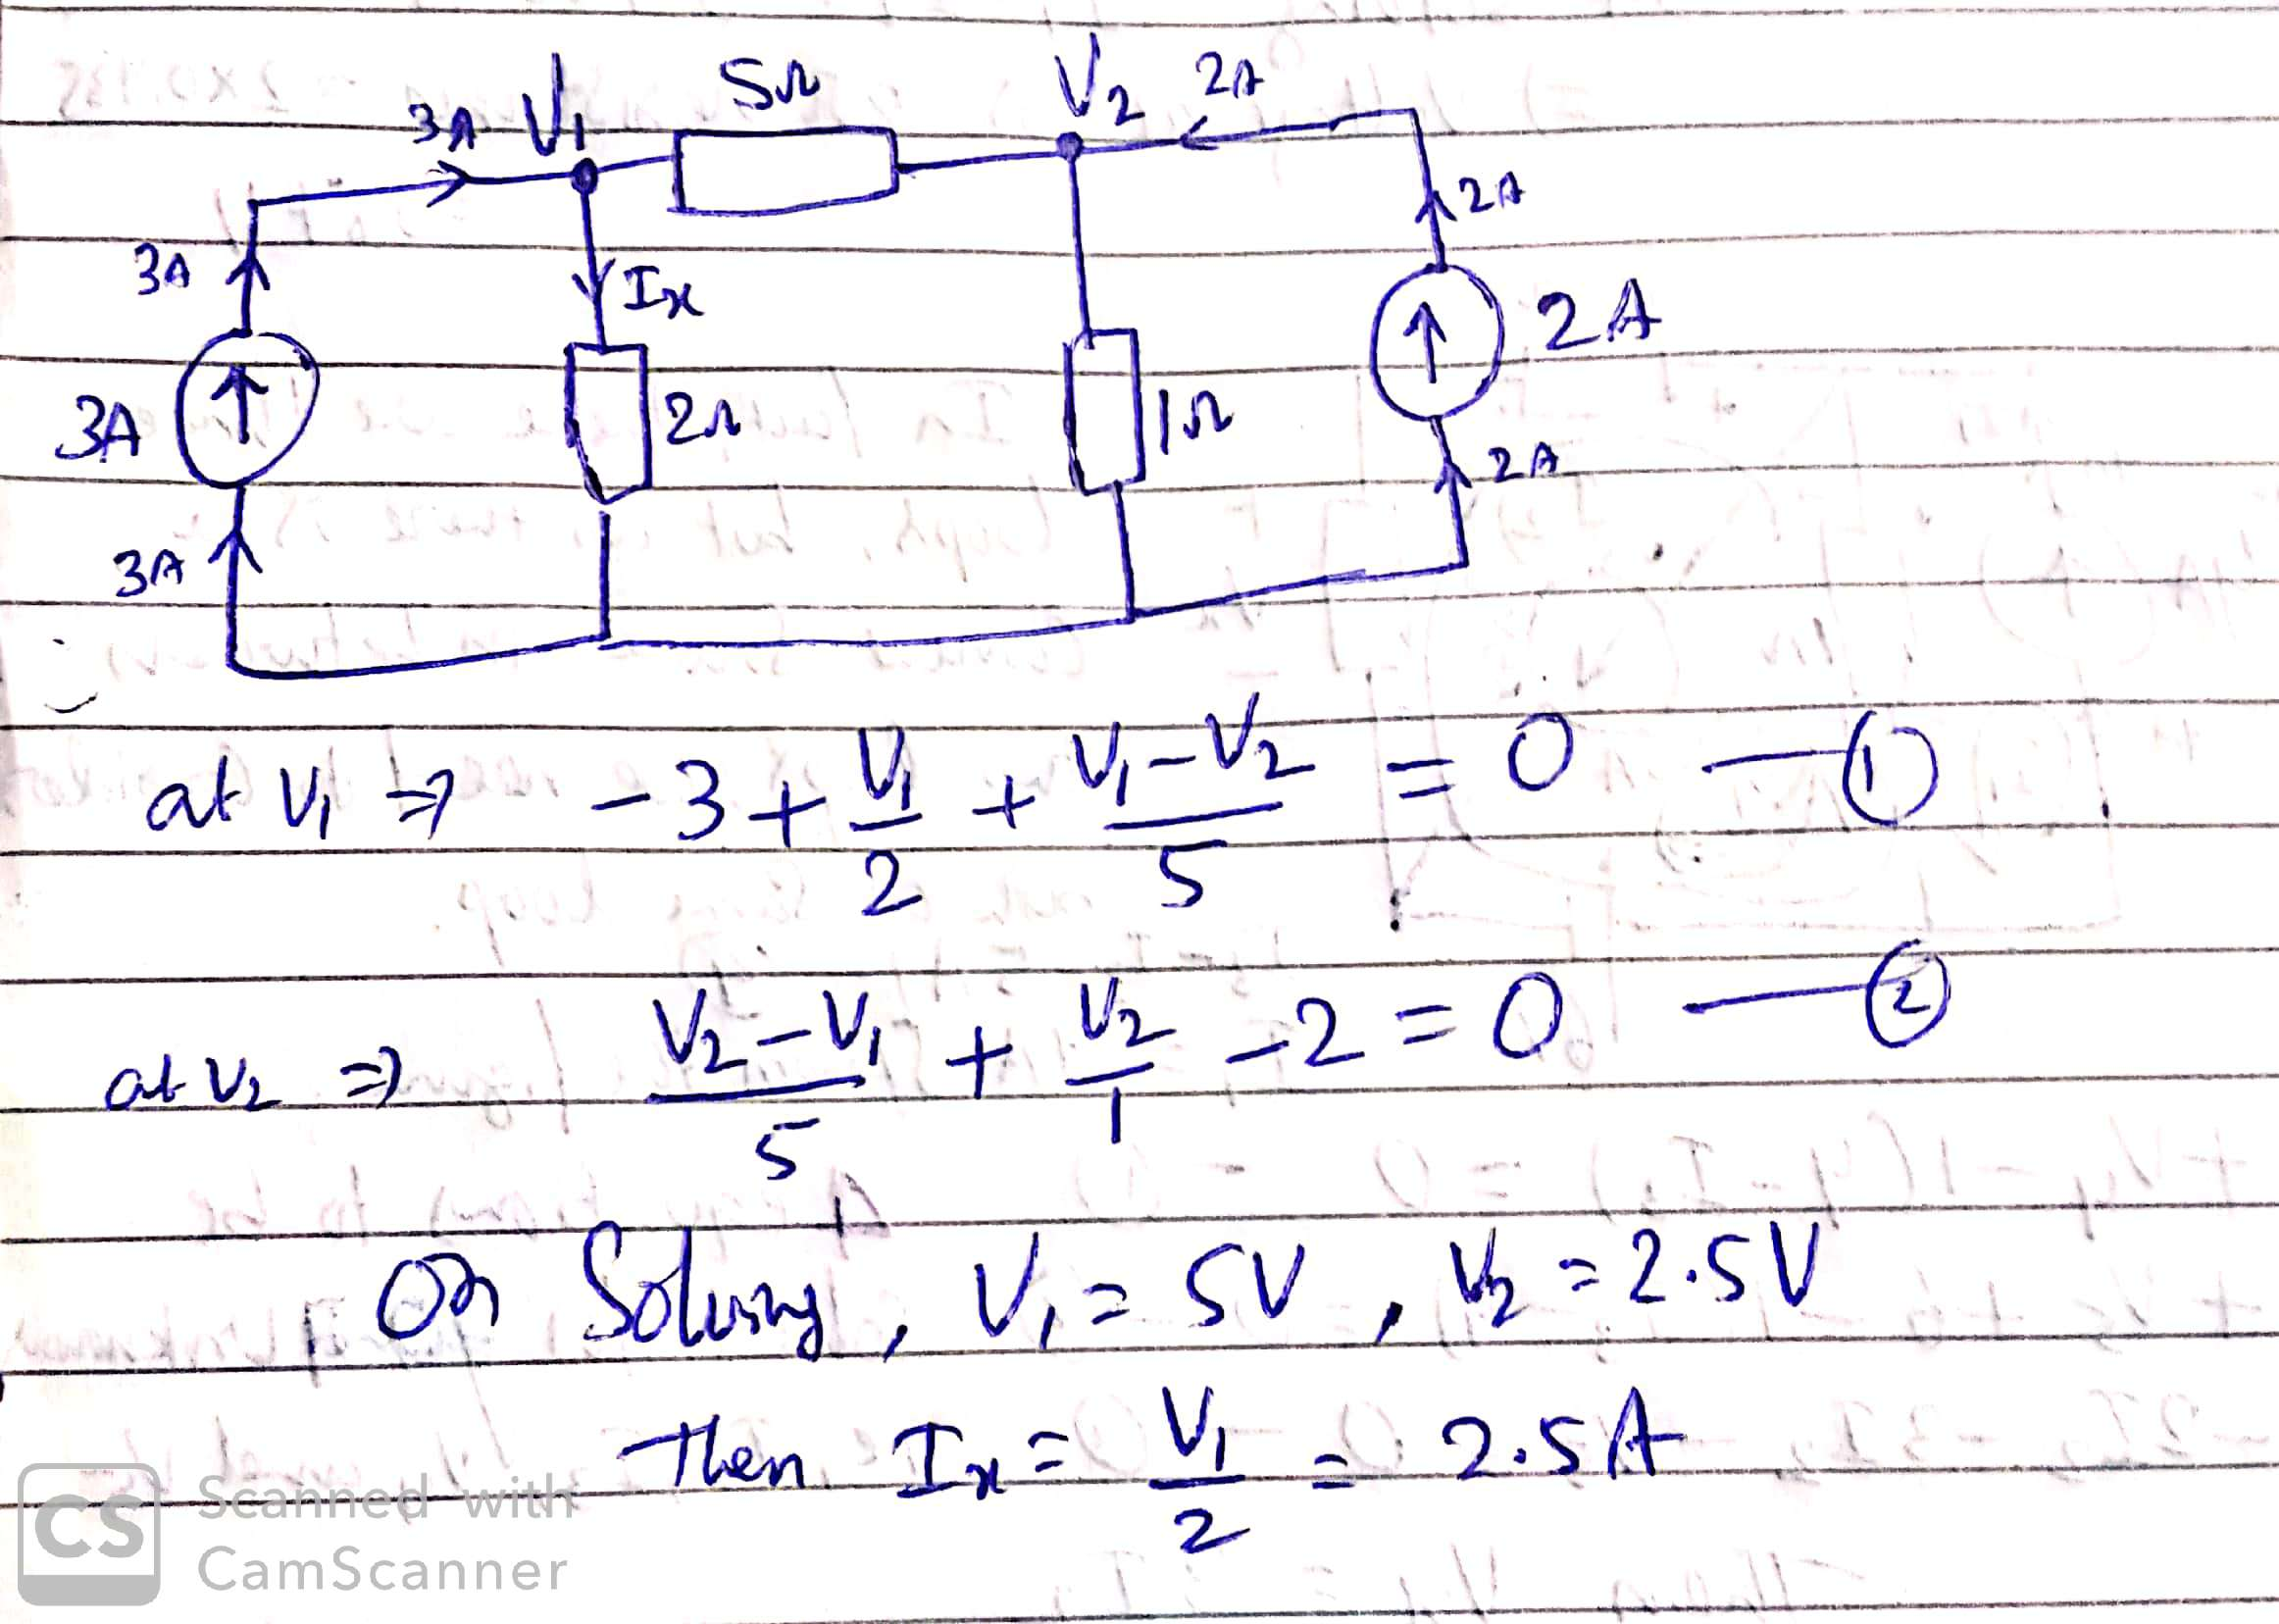 3A V₁ 5Ω V₂ 2A
2A
3A
Ix
2A
3A
2Ω
1Ω
2A
3A
at V₁ ⇒ -3 + V₁/2 + (V₁-V₂)/5 = 0 — ①
at V₂ ⇒ (V₂-V₁)/5 + V₂/1 - 2 = 0 — ②
On Solving, V₁ = 5V, V₂ = 2.5V
Then Ix = V₁/2 = 2.5A
CS Scanned with
CamScanner